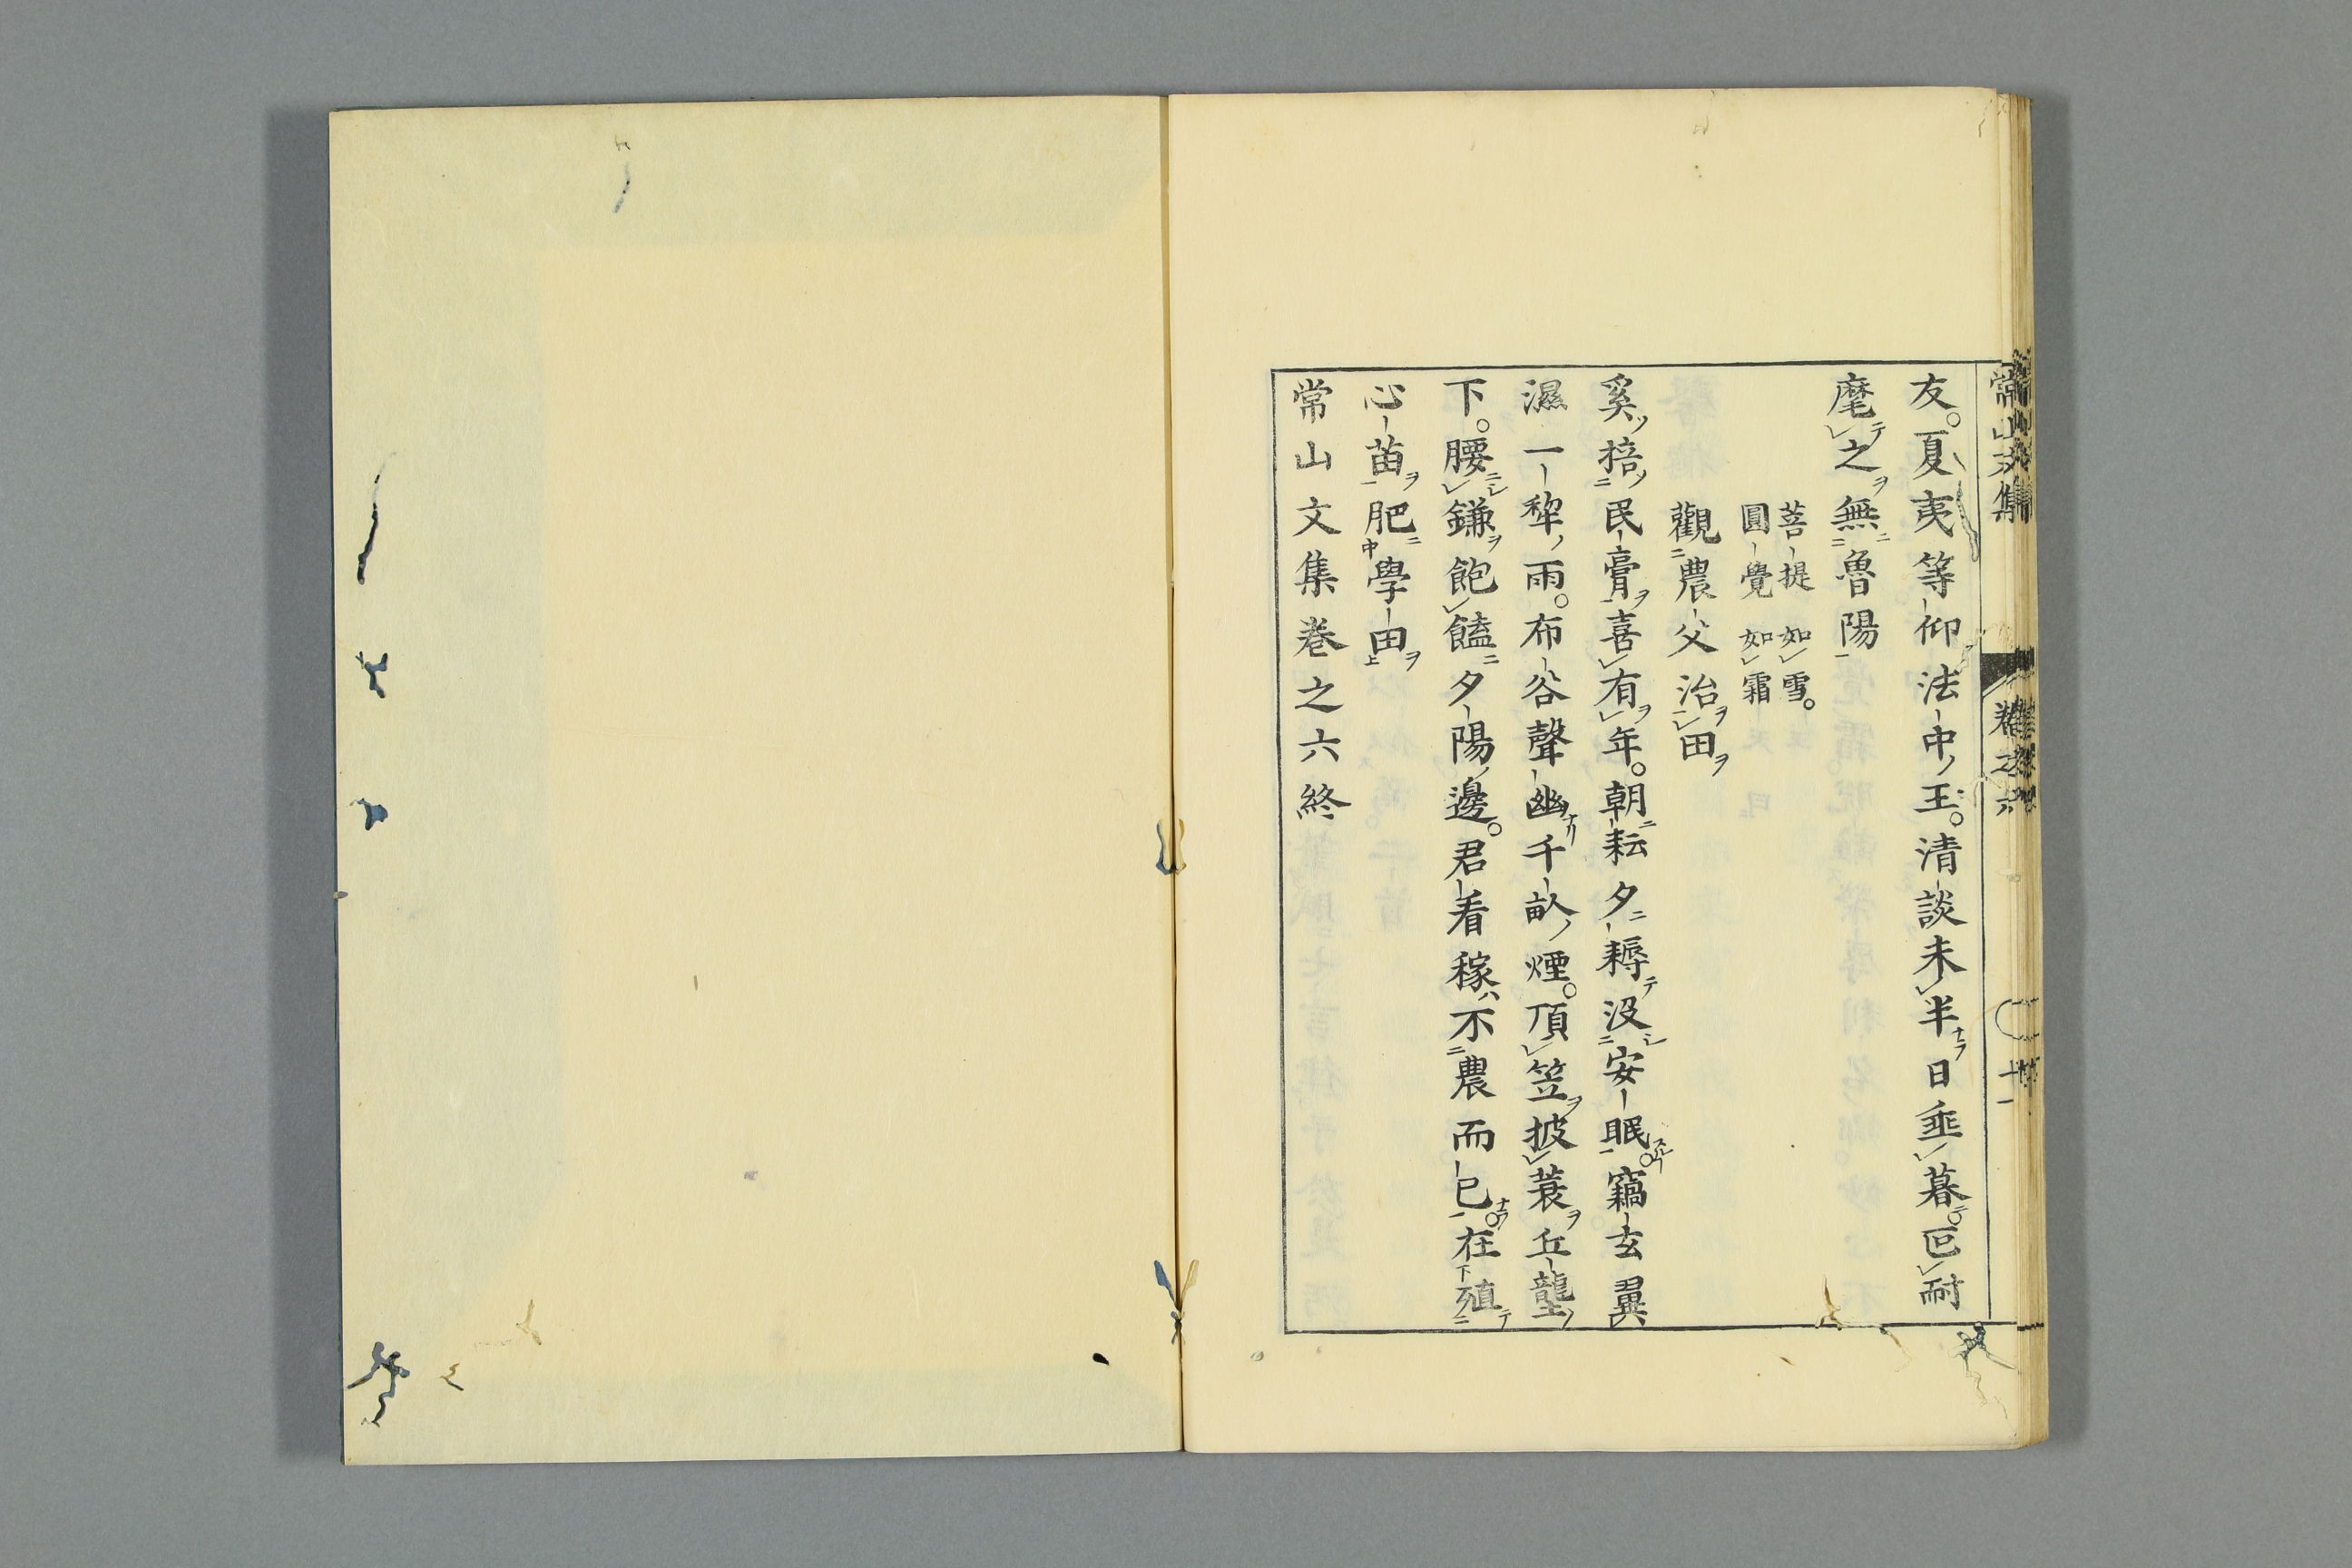 友。夏夷等仰法中王。清談未半日垂暮。叵耐
麾之無魯陽
菩提如雪。
圓覺如霜
觀農父治田
奚掊民膏喜有年。朝耘夕耨没安眠。竊玄翼
濕一犂雨。布谷聲幽千畝煙。頂笠披蓑丘壟
下。腰鎌飽饁夕陽邊。君看稼不農而已。在殖
心苗肥學田
常山文集卷之六終
常山文集
卷之六
十一